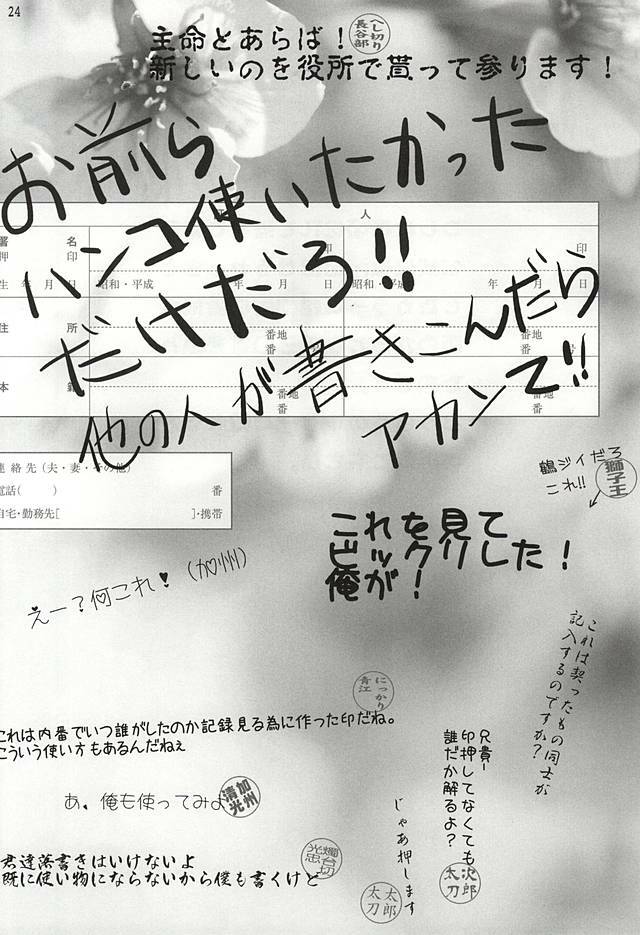 24
主命とあらば！
へし切り
長谷部
新しいのを役所で貰って参ります！
お前ら
ハンコ使いたかった
だけだろ!!
他の人が書きこんだら
アカンて!!
人
署名
押印
印
印
生年月日
昭和・平成 年 月 日
昭和・平成 年 月 日
住所
番地
番
番地
番 号
本籍
番地
番
番地
番
連絡先（夫・妻・その他）
電話（ ） 番
自宅・勤務先[ ]・携帯
鶴ジイだろ
これ!!
獅子王
これを見て
ビックリした！
俺が！
えー？何これ♥（加州）
これは契ったもの同士が
記入するのですか？
にっかり
青江
これは内番でいつ誰がしたのか記録見る為に作った印だね。
こういう使い方もあるんだねぇ
あ、俺も使ってみよ
加州
清光
兄貴ー
印押してなくても
誰だか解るよ？
次郎
太刀
じゃあ押します
太郎
太刀
燭台切
光忠
君達落書きはいけないよ
既に使い物にならないから僕も書くけど